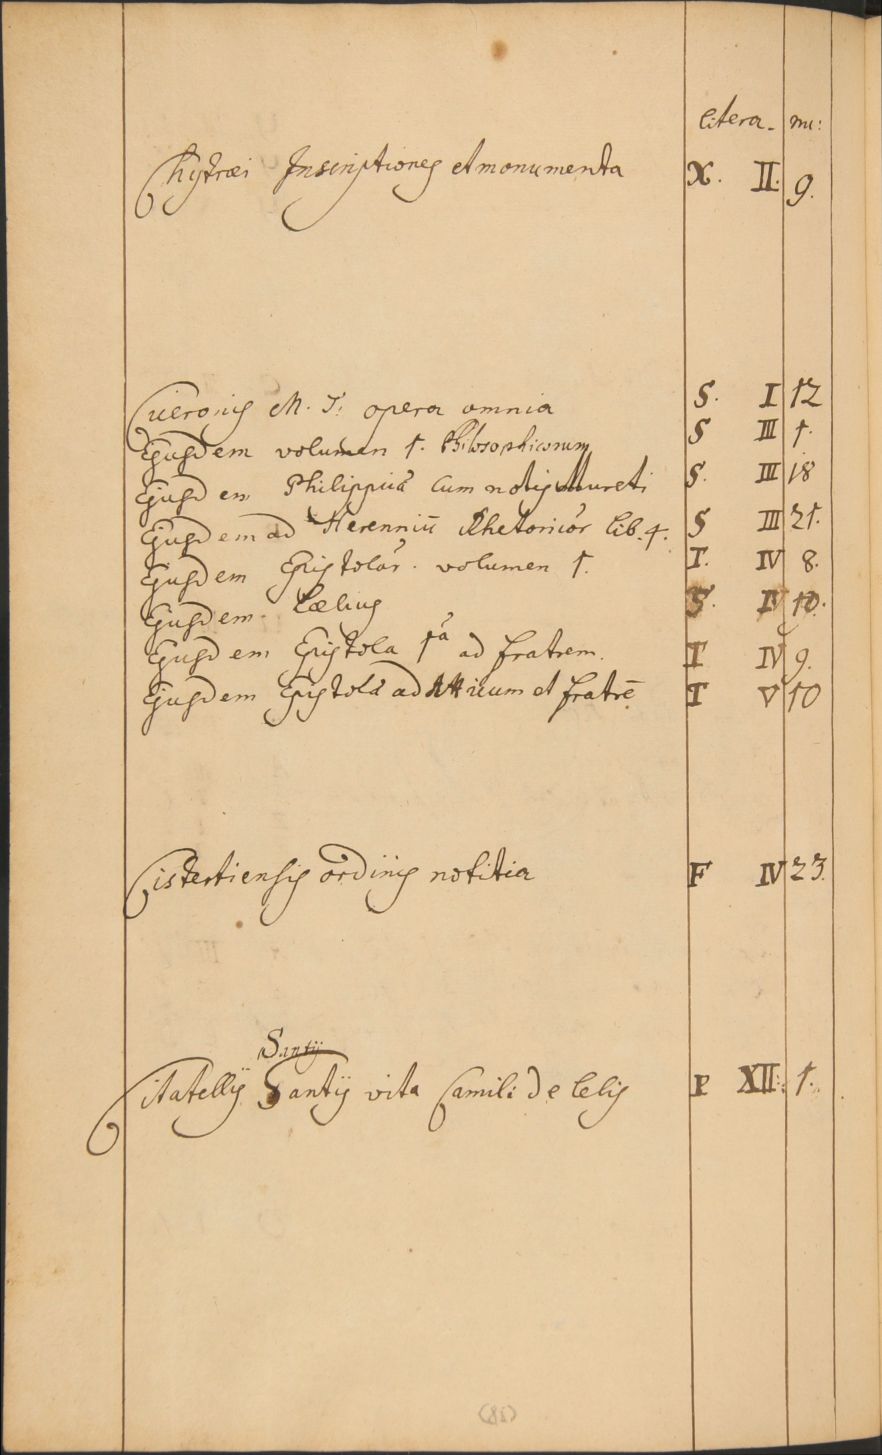 litera. nu:
Chytraei Inscriptiones et monumenta X. II. 9.
Ciceronis M. T. opera omnia S. I 12
Ejusdem volumen 1. Philosophicorum S III 1.
Ejusdem Philippicā Cum notis Mureti S. III 18
Ejusdem ad Herenniū Rhetoricōr lib. 4. S III 21.
Ejusdem Epistolār. volumen 1. T. IV 8.
Ejusdem. Laelius S. IV 10.
Ejusdem Epistola 1ª ad fratrem. T IV 9.
Ejusdem Epistolā ad Atticum et fratrē T V 10
Cistertiensis ordinis notitia F IV 23.
Santij
Citatellij Santij vita Camili de lelis P XII. 1.